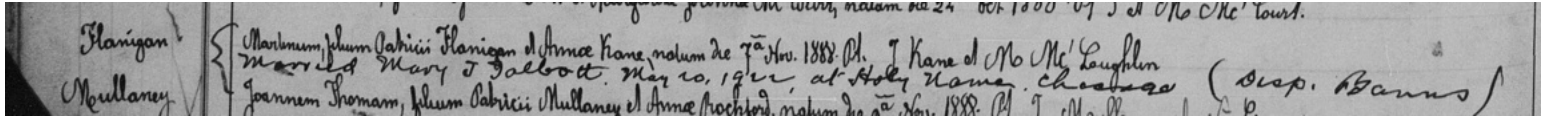 natam die 24 Oct 1888 et M Mc'Court.
Flanigan { Martinum, filium Patricii Flanigan et Annæ Kane, natum die 7ª Nov. 1888. Pt. J Kane et M Mc'Loughlin
Married Mary J Talbott. May 20, 1922, at Holy Name. Chicago (Disp. Banns)
Mullaney Joannem Thomam, filium Patricii Mullaney et Annæ Rochford, natum die Nov. 1888. Pt. J